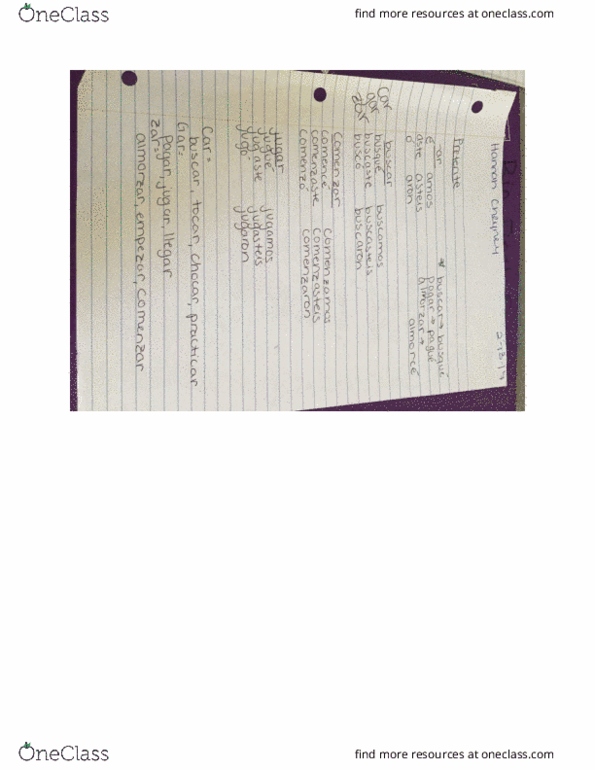 OneClass
find more resources at oneclass.com
Hannan Cheyney
2-13-17
Pretente
ar
é amos
aste asteis
ó aron
* buscar → busqué
pagar → pagué
almorzar →
almorcé
Car
gar
zar
buscar
busqué buscamos
buscaste buscasteis
buscó buscaron
Comenzar
comencé Comenzamos
comenzaste Comenzasteis
comenzó comenzaron
jugar
jugué jugamos
jugaste jugasteis
jugó jugaron
Car=
buscar, tocar, chocar, practicar
Gar=
Pagar, jugar, llegar
zar=
almorzar, empezar, Comenzar
OneClass
find more resources at oneclass.com